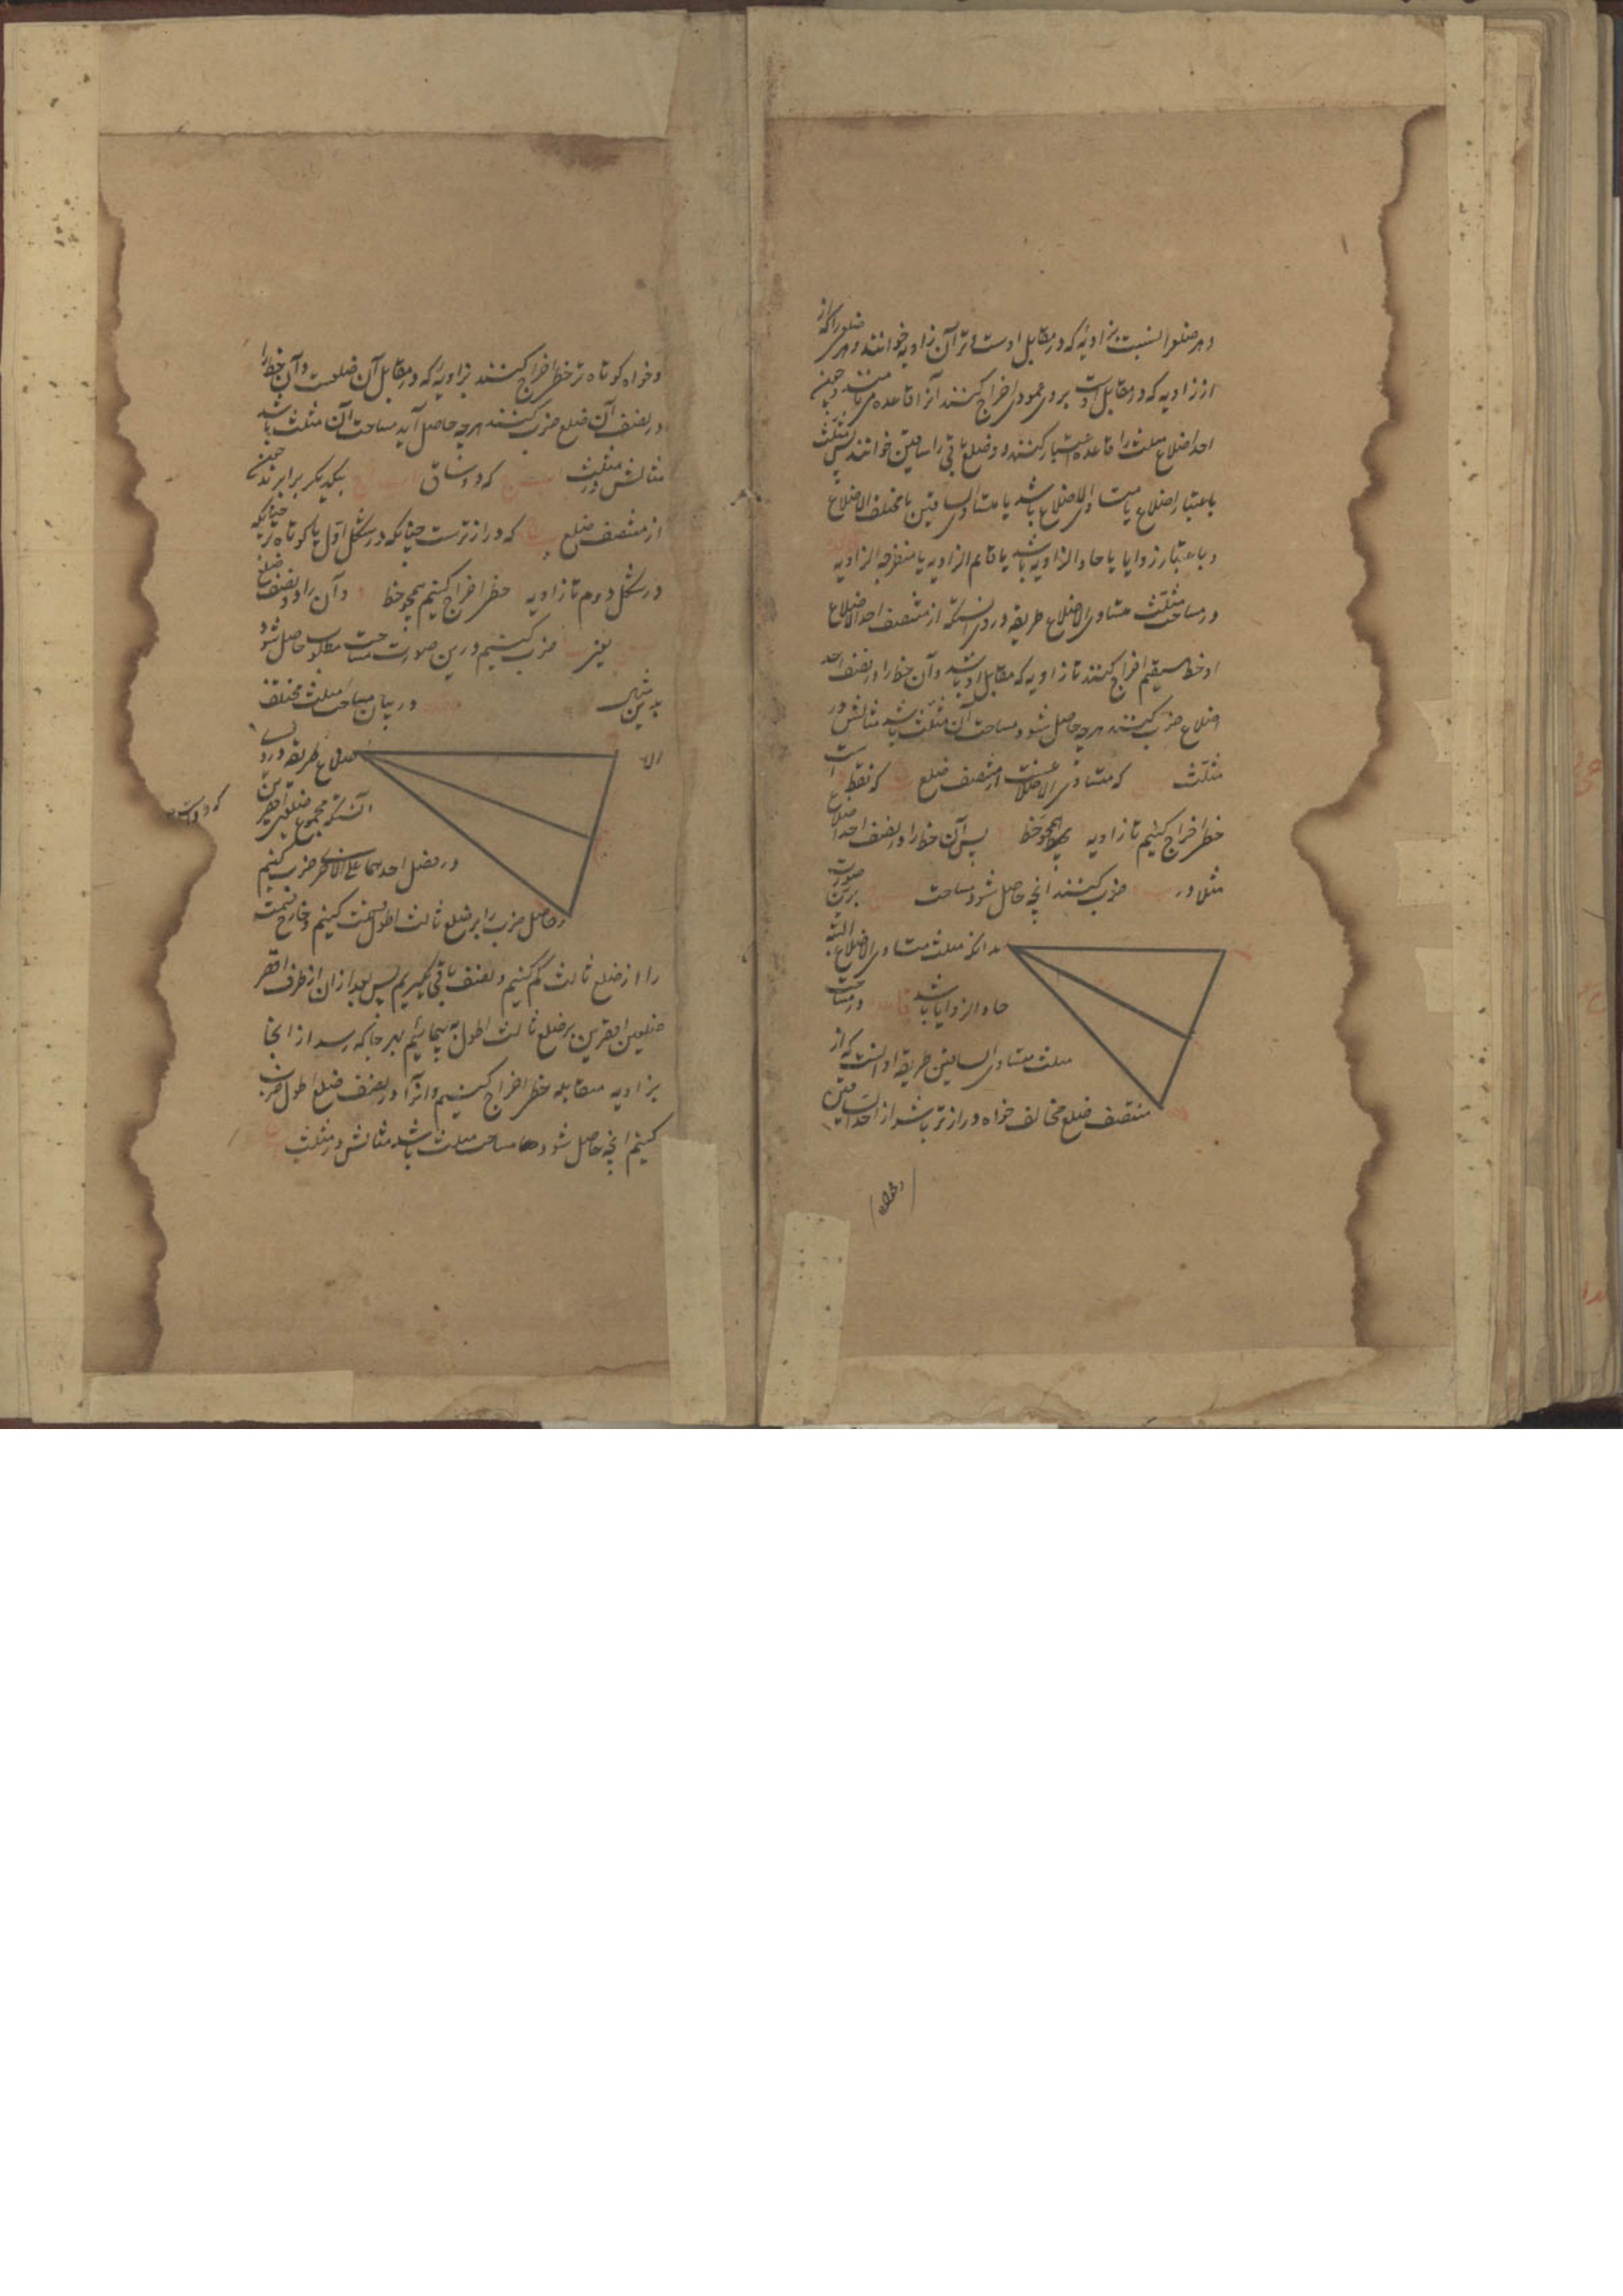 و هر ضلع را نسبت بزاویهٔ که در مقابل اوست وتر آن زاویه خوانند و هر ضلعی را که از
از زاویه که در مقابل اوست بر وی عمودی اخراج کنند آنرا قاعده می نامند و چون
احد اضلاع مثلث را قاعده اعتبار کنند دو ضلع باقی را ساقین خوانند پس مثلث
باعتبار اضلاع یا متساوی الاضلاع باشد یا متساوی الساقین یا مختلف الاضلاع
و باعتبار زوایا یا حاد الزاویه باشد یا قایم الزاویه یا منفرجه الزاویه
در مساحت مثلث متساوی الاضلاع طریقه در وی آنست که از منتصف احد الاضلاع
او خط مستقیم اخراج کنند تا زاویه که مقابل او باشد و آن خط را در نصف احد
اضلاع ضرب کنند هر چه حاصل شود مساحت آن مثلث باشد مثالش در
مثلث که متساوی الاضلاع است از منتصف ضلع که نقطه است
خط اخراج کنیم تا زاویه همچو خط پس آن خط را در نصف احد اضلاع
مثلا در ضرب کنند آنچه حاصل شود مساحت برین صورت
بدانکه مثلث متساوی الاضلاع البته
حاد الزوایا باشد در مساحت
مثلث متساوی الساقین طریقه او آنست که از
منتصف ضلع مخالف خواه درازتر باشد از احد الساقین
و خواه
و خواه کوتاه تر خط اخراج کنند بزاویه که در مقابل آن ضلعست و آن خط را
در نصف آن ضلع ضرب کنند هر چه حاصل آید مساحت آن مثلث باشد
مثالش در مثلث که دو ساق بیکدیکر برابرند چون
از منتصف ضلع که درازترست چنانکه در شکل اول یا کوتاه تر چنانکه
در شکل دوم تا زاویه خط اخراج کنیم همچو خط و آن را در نصف ضلع
یعنی ضرب کنیم درین صورت مساحت مطلوب حاصل شود
بدین شکل در بیان مساحت مثلث مختلف
الا
ضلاع طریقه در وی
آنست که مجموع ضلعین اقصرین
که دو است
در فضل احدهما علی الاخر ضرب کنیم
و حاصل ضرب را بر ضلع ثالث اطول قسمت کنیم و خارج قسمت
را از ضلع ثالث کم کنیم و نصف باقی بگیریم پس بعد از آن از طرف اقصر
ضلعین اقصرین بر ضلع ثالث اطول به پیماییم بهر جا که رسد از انجا
بزاویه مقابله خط اخراج کنیم و آنرا در نصف ضلع اطول ضرب
کنیم آنچه حاصل شود مساحت مثلث باشد مثالش در مثلث